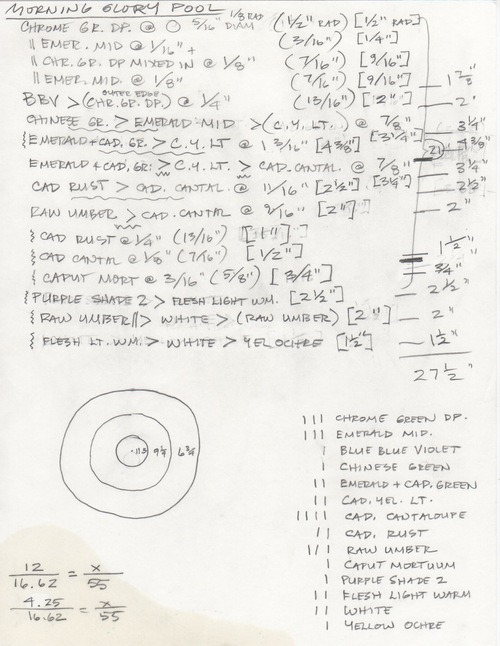 MORNING GLORY POOL
CHROME GR. DP. @ 5/16" DIAM 1/8 RAD (1 1/2" RAD) [1/2" RAD]
" EMER. MID @ 1/16" + (3/16") [1/4"]
" CHR. GR. DP MIXED IN @ 1/8" (7/16") [9/16"]
" EMER. MID. @ 1/8" (7/16") [9/16"] 1 7/8"
BBV > (CHR. GR. DP.) OUTER EDGE @ 1/4" (13/16") [2"] 2"
CHINESE GR. > EMERALD MID > (C.Y. LT.) @ 7/8" [3 1/4"] 3 1/4"
{ EMERALD + CAD. GR. > C.Y. LT @ 1 3/16" [4 3/8"] (21) 4 3/8"
EMERALD + CAD, GR: > C.Y. LT. > CAD. CANTAL. @ 7/8" [3 1/4"] 3 1/4"
CAD RUST > CAD. CANTAL. @ 11/16" [2 1/2"] 2 1/2"
RAW UMBER > CAD. CANTAL @ 9/16" [2"] 2"
{ CAD RUST @ 1/4" (13/16") [1"] 1 1/2"
{ CAD CANTAL @ 1/8" (7/16") [1/2"]
{ CAPUT MORT @ 3/16" (5/8") [3/4"] 3/4"
{ PURPLE SHADE 2 > FLESH LIGHT WM. [2 1/2"] 2 1/2"
{ RAW UMBER > WHITE > (RAW UMBER) [2"] 2"
{ FLESH LT. WM. > WHITE > YEL OCHRE [1 1/2"] 1 1/2"
27 1/2"
III CHROME GREEN DP.
III EMERALD MID.
I BLUE BLUE VIOLET
I CHINESE GREEN
II EMERALD + CAD. GREEN
II CAD. YEL. LT.
IIII CAD. CANTALOUPE
II CAD. RUST
III RAW UMBER
I CAPUT MORTUUM
I PURPLE SHADE 2
II FLESH LIGHT WARM
II WHITE
I YELLOW OCHRE
12/16.62 = x/55
4.25/16.62 = x/55